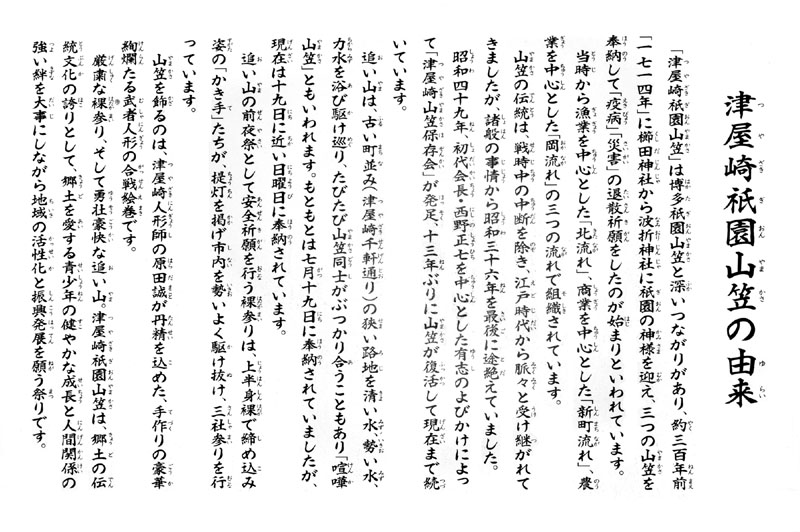 津屋崎祇園山笠の由来
「津屋崎祇園山笠」は博多祇園山笠と深いつながりがあり、約三百年前
「一七一四年」に櫛田神社から波折神社に祇園の神様を迎え、三つの山笠を
奉納して「疫病」「災害」の退散祈願をしたのが始まりといわれています。
当時から漁業を中心とした「北流れ」、商業を中心とした「新町流れ」、農
業を中心とした「岡流れ」の三つの流れで組織されています。
山笠の伝統は、戦時中の中断を除き、江戸時代から脈々と受け継がれて
きましたが、諸般の事情から昭和三十六年を最後に途絶えていました。
昭和四十九年、初代会長・西野正七を中心とした有志のよびかけによっ
て「津屋崎山笠保存会」が発足、十三年ぶりに山笠が復活して現在まで続
いています。
追い山は、古い町並み（津屋崎千軒通り）の狭い路地を清い水、勢い水、
力水を浴び駆け巡り、たびたび山笠同士がぶつかり合うこともあり「喧嘩
山笠」ともいわれます。もともとは七月十九日に奉納されていましたが、
現在は十九日に近い日曜日に奉納されています。
追い山の前夜祭として安全祈願を行う裸参りは、上半身裸で締め込み
姿の「かき手」たちが、提灯を掲げ市内を勢いよく駆け抜け、三社参りを行
っています。
山笠を飾るのは、津屋崎人形師の原田誠が丹精を込めた、手作りの豪華
絢爛たる武者人形の合戦絵巻です。
厳粛な裸参り、そして勇壮豪快な追い山。津屋崎祇園山笠は、郷土の伝
統文化の誇りとして、郷土を愛する青少年の健やかな成長と人間関係の
強い絆を大事にしながら地域の活性化と振興発展を願う祭りです。